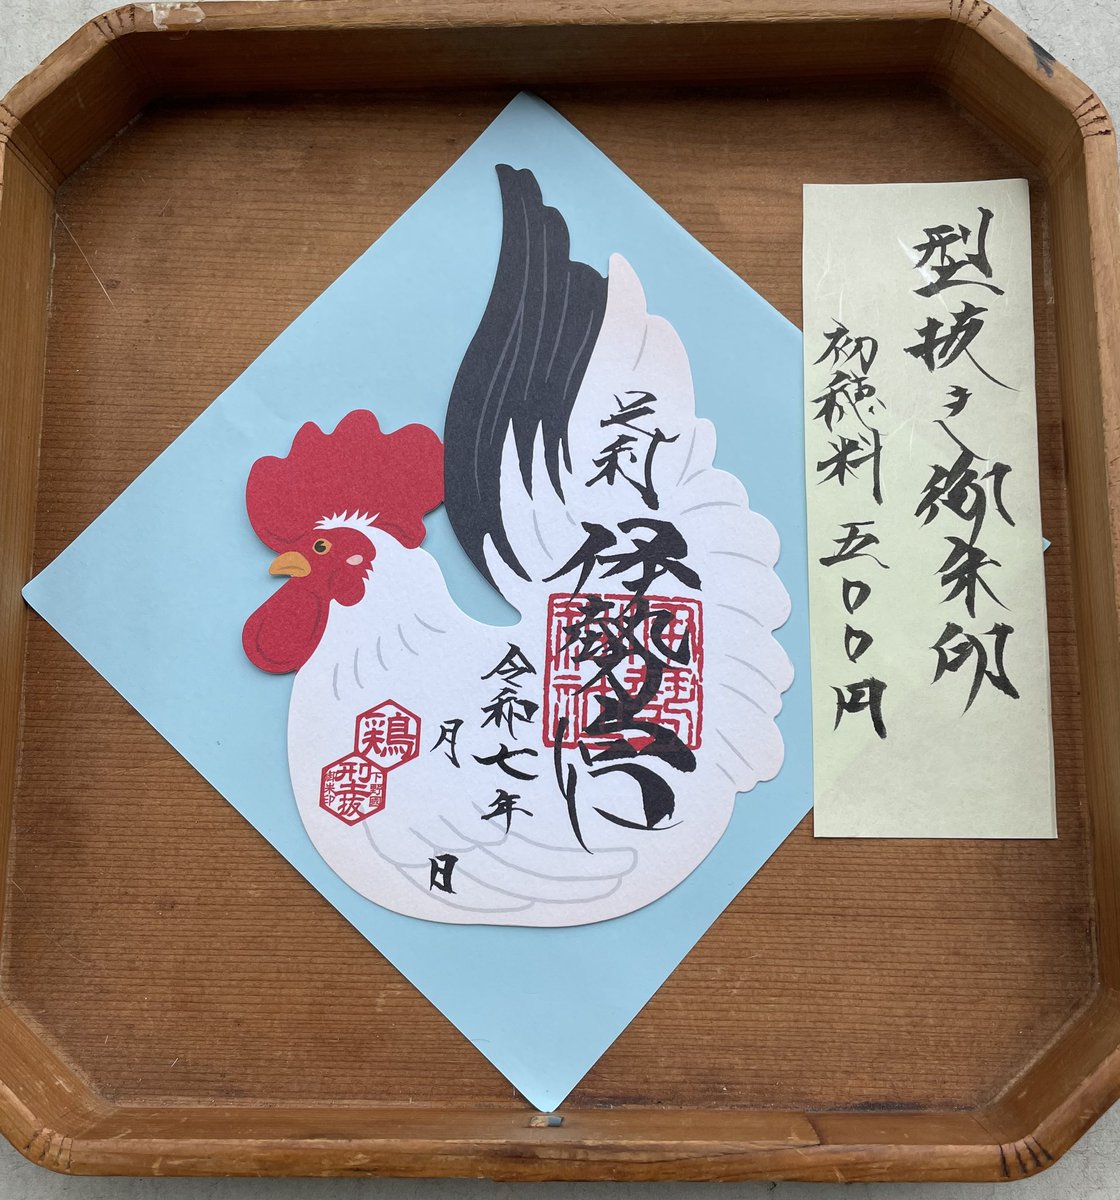 型抜き御朱印
初穂料 五〇〇円
足利
伊勢
令和七年
月 日
鶏
下野國
型抜
御朱印